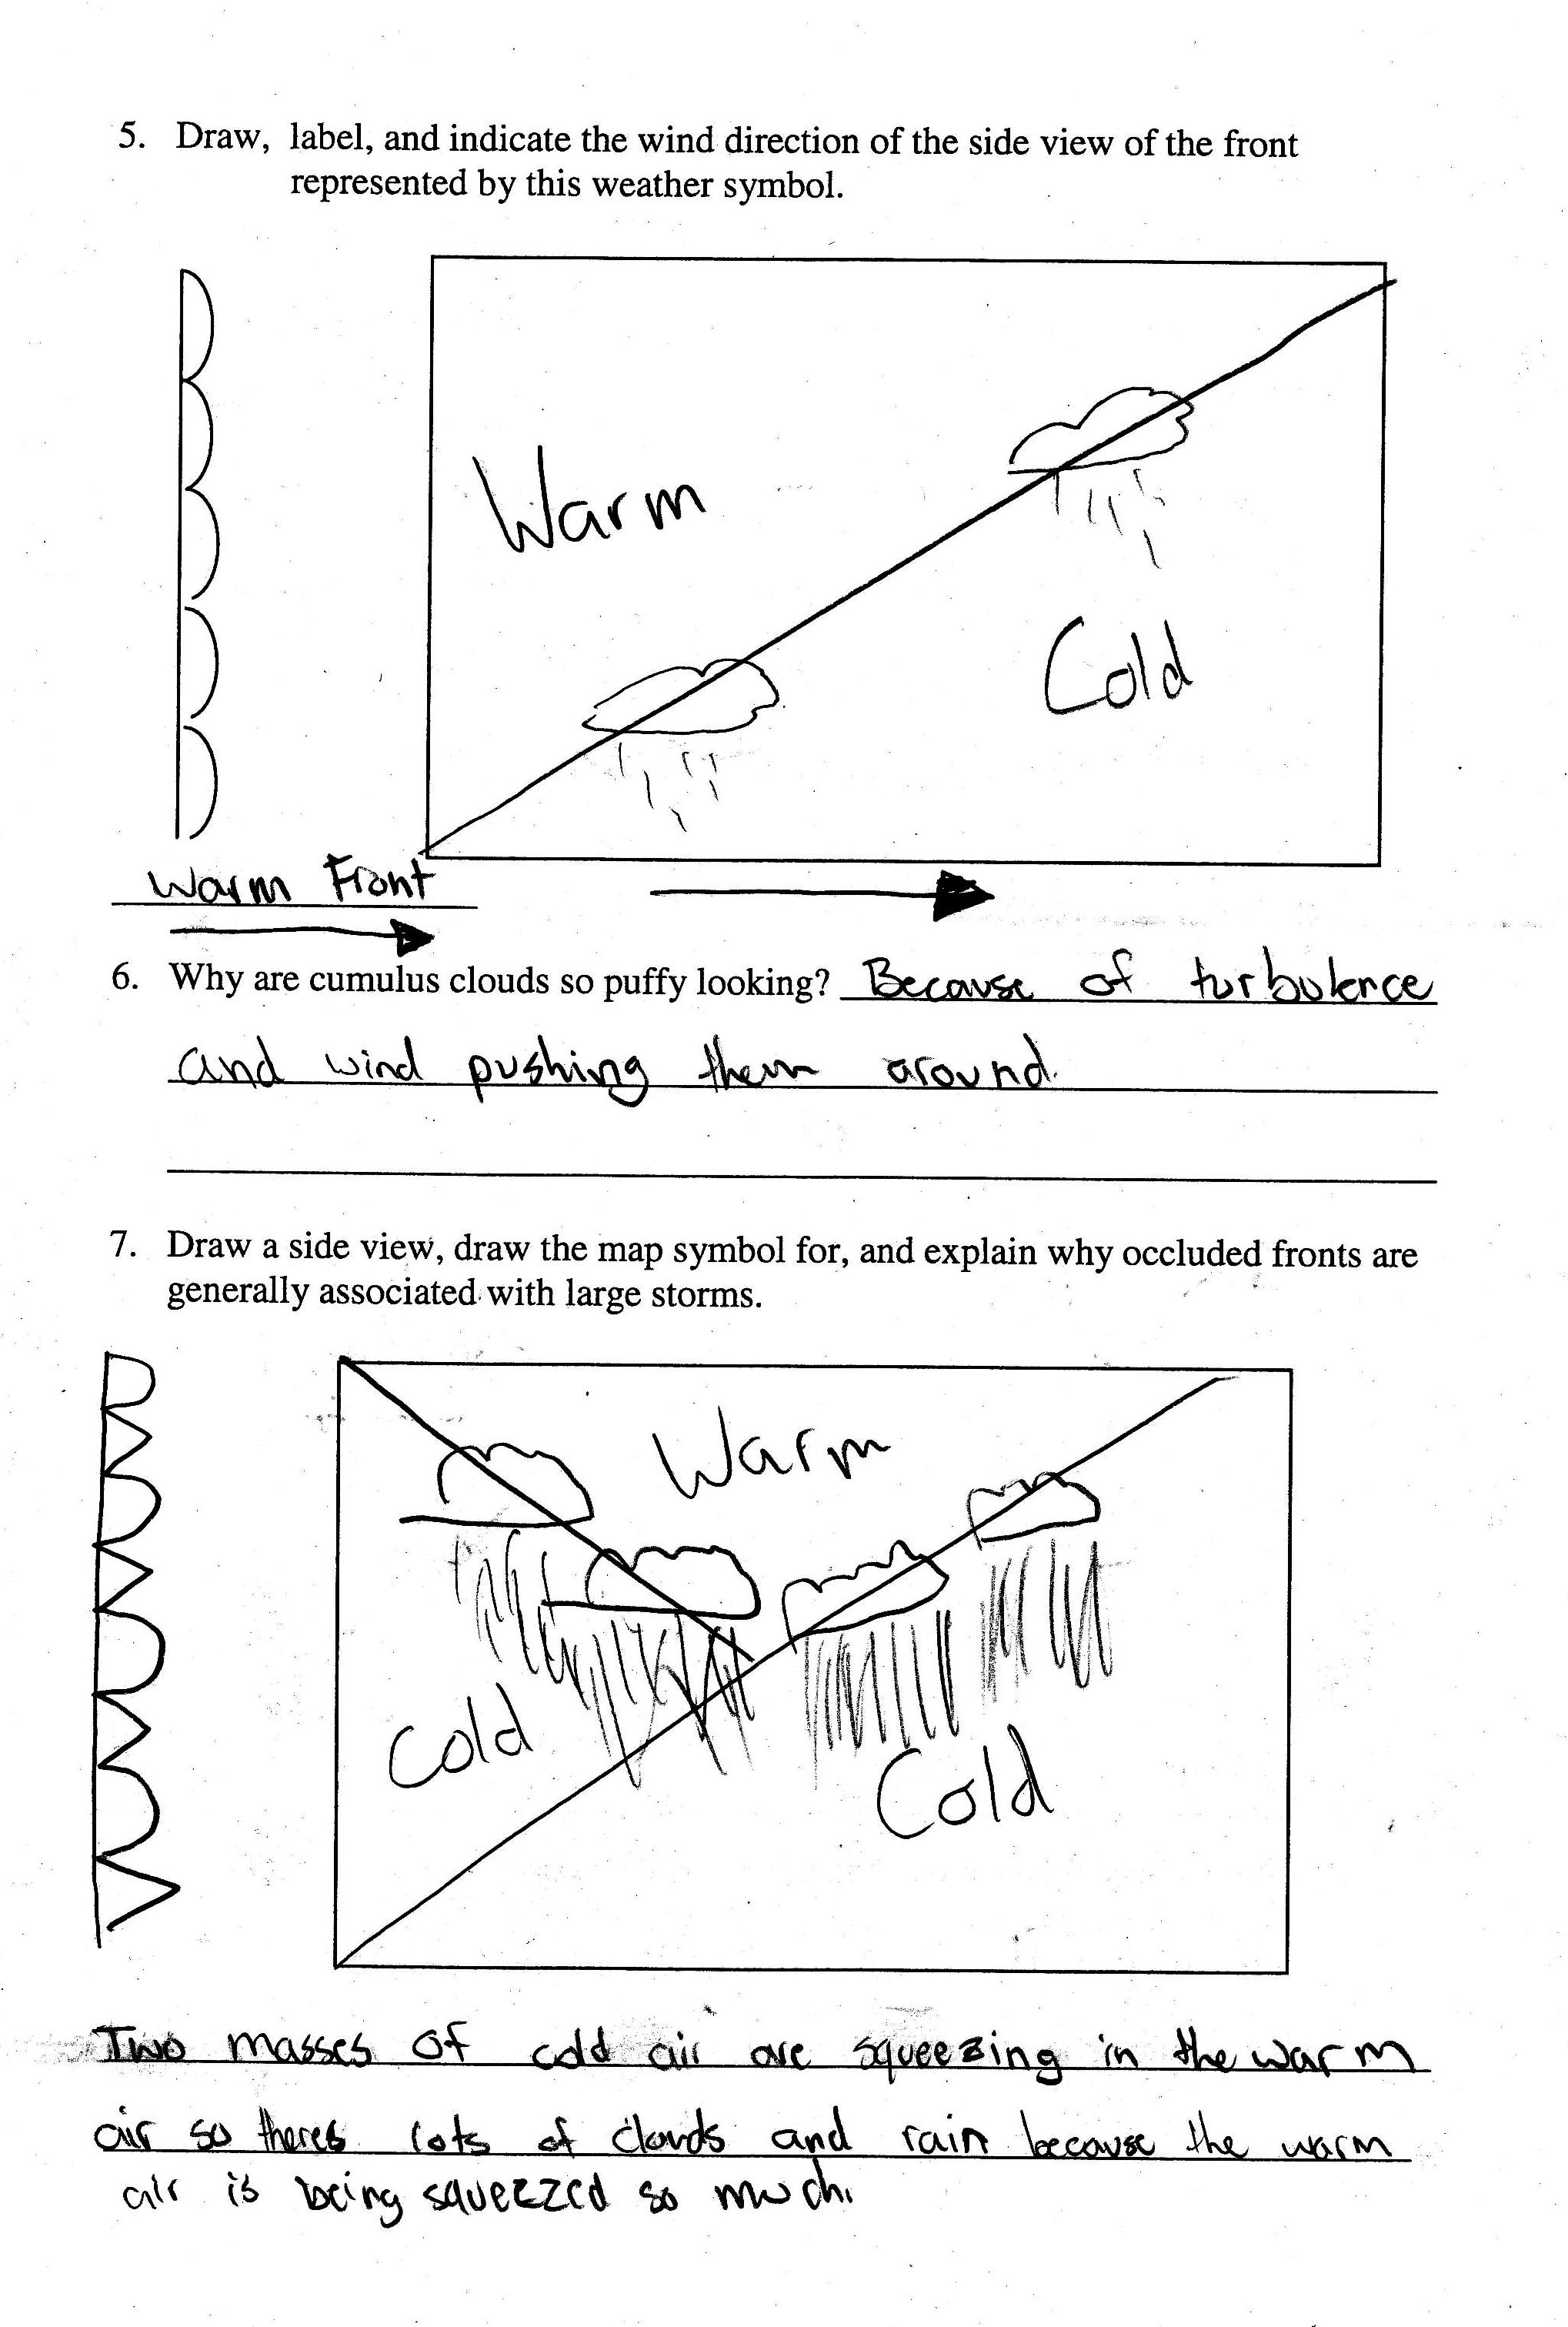 5. Draw, label, and indicate the wind direction of the side view of the front
represented by this weather symbol.
Warm
Cold
Warm Front
6. Why are cumulus clouds so puffy looking? Because of turbulence
and wind pushing them around.
7. Draw a side view, draw the map symbol for, and explain why occluded fronts are
generally associated with large storms.
Warm
Cold
Cold
Two masses of cold air are squeezing in the warm
air so theres lots of clouds and rain because the warm
air is being squeezzed so much.